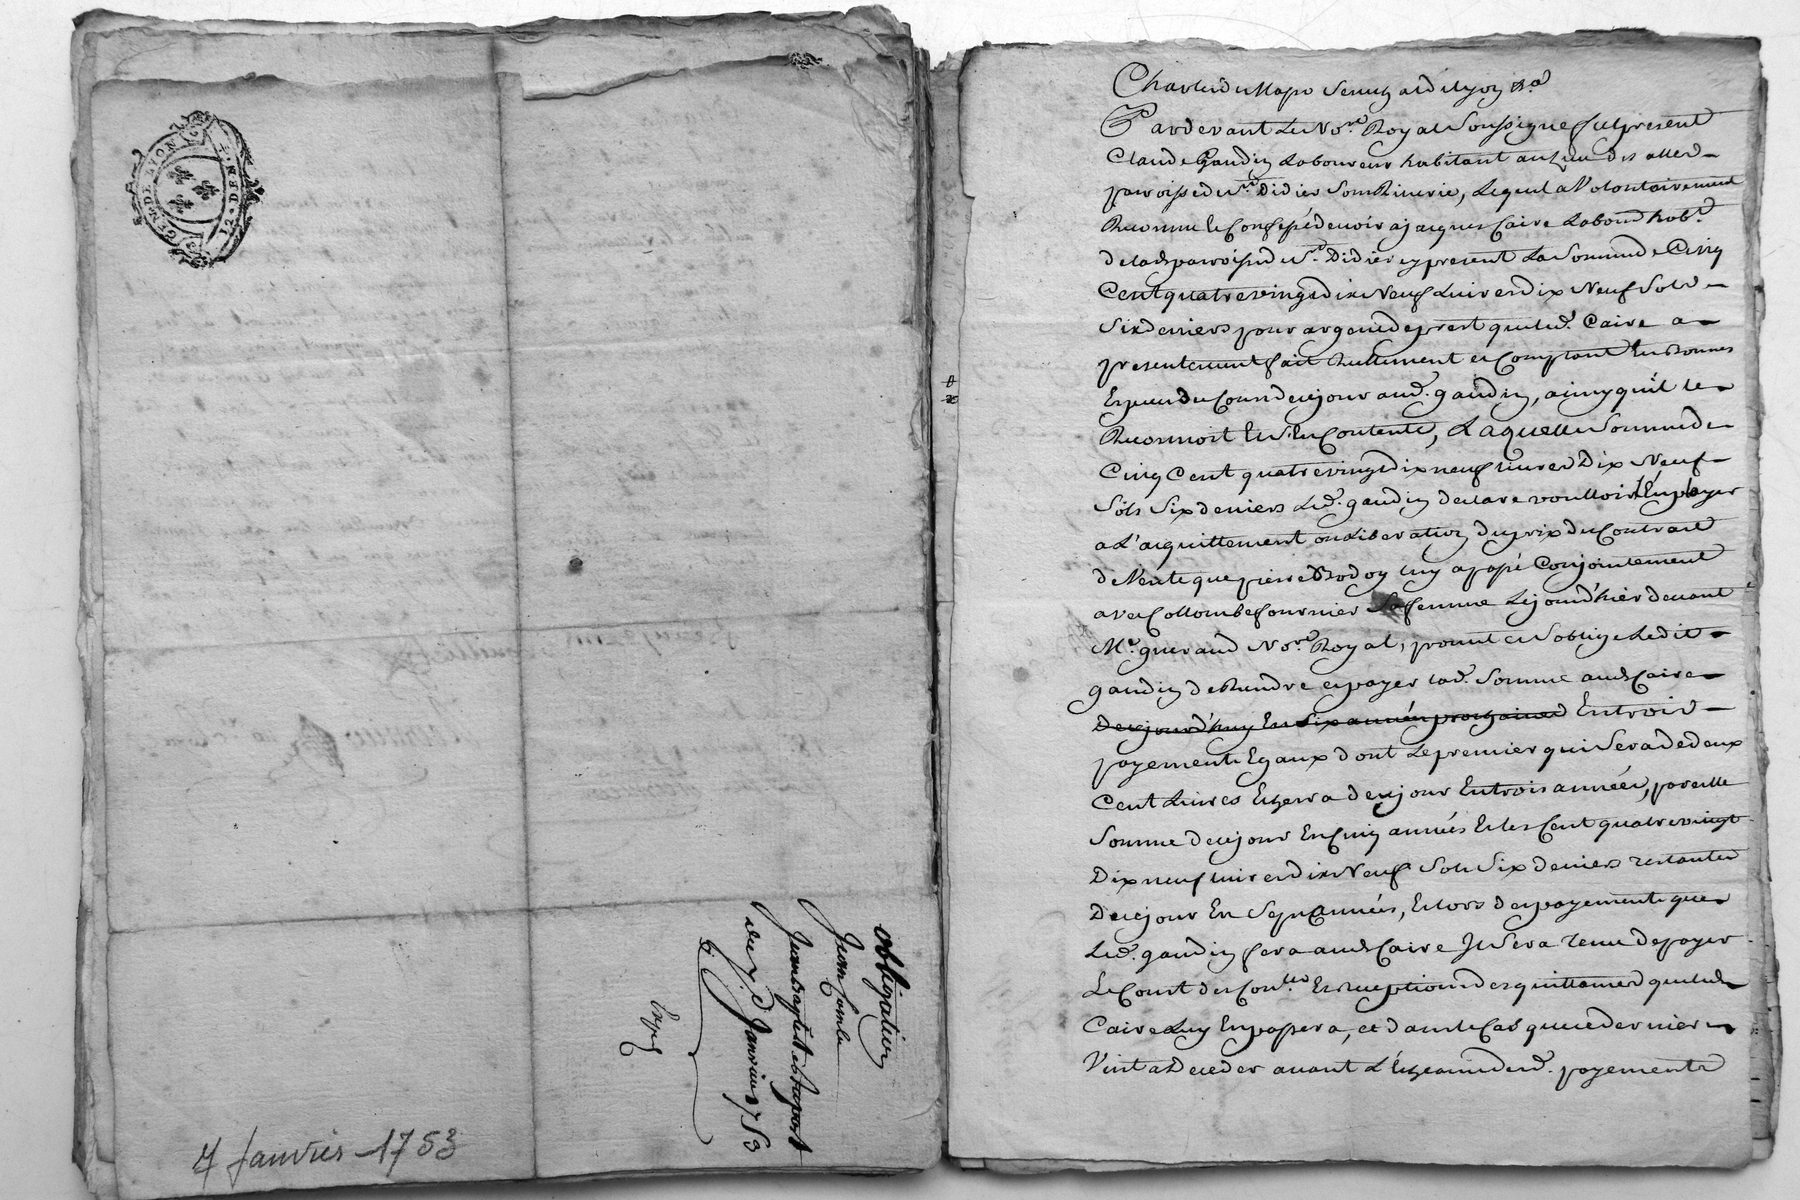 GEN. DE LYON
12. DEN
obligation
Jean Combe
Jean Baptiste
du 7 Janvier 1753
7 Janvier 1753
Pardevant Le No.re Royal Soussigné fut present
Claude Gaudin Laboureur habitant au lieu des
paroisse de St. Didier Sous Riverie, Lequel a Volontairement
Reconnu et Confessé devoir a jaques Caire Labour hab.t
de lad paroisse de St. Didier cy present La Somme de Cinq
Cent quatrevingt dix Neuf Livres dix Neuf Sols
Six deniers pour argent de prest que led. Caire a
presentement fait Reellement et Comptant En Bonnes
Especes du Cours de ce jour aud. gaudin, ainsy qu'il le
Reconnoit Et S'en Contente, Laquelle Somme de
Cinq Cent quatrevingt dix neuf livres Dix Neuf
Sols Six deniers Led. gaudin declare voulloir Employer
a L'acquittement ou Liberation du prix du Contract
de Vente que pierre luy a passé Conjointement
avec Collombe fournier Sa femme Le jour d'hier devant
Me. gueraud No.re Royal, promet et s'oblige Ledit
gaudin de Rendre et payer lad. Somme aud Caire
De ce jourd'huy En Six années prochaines En trois
payements Egaux dont Le premier qui Sera de deux
Cent Livres Echerra de ce jour En trois années, pareille
Somme de ce jour En Cinq années Et les Cent quatrevingt
Dix neuf livres dix Neuf Sols Six deniers restantes
De ce jour En Sept années, Et lors des payements que
Led. gaudin fera aud Caire Il Sera tenu de payer
Le Cout des Et Receptions des quittances que led
Caire Luy En passera, et dans le Cas que ce dernier
Vint a Deceder avant L'Echeance desd. payements